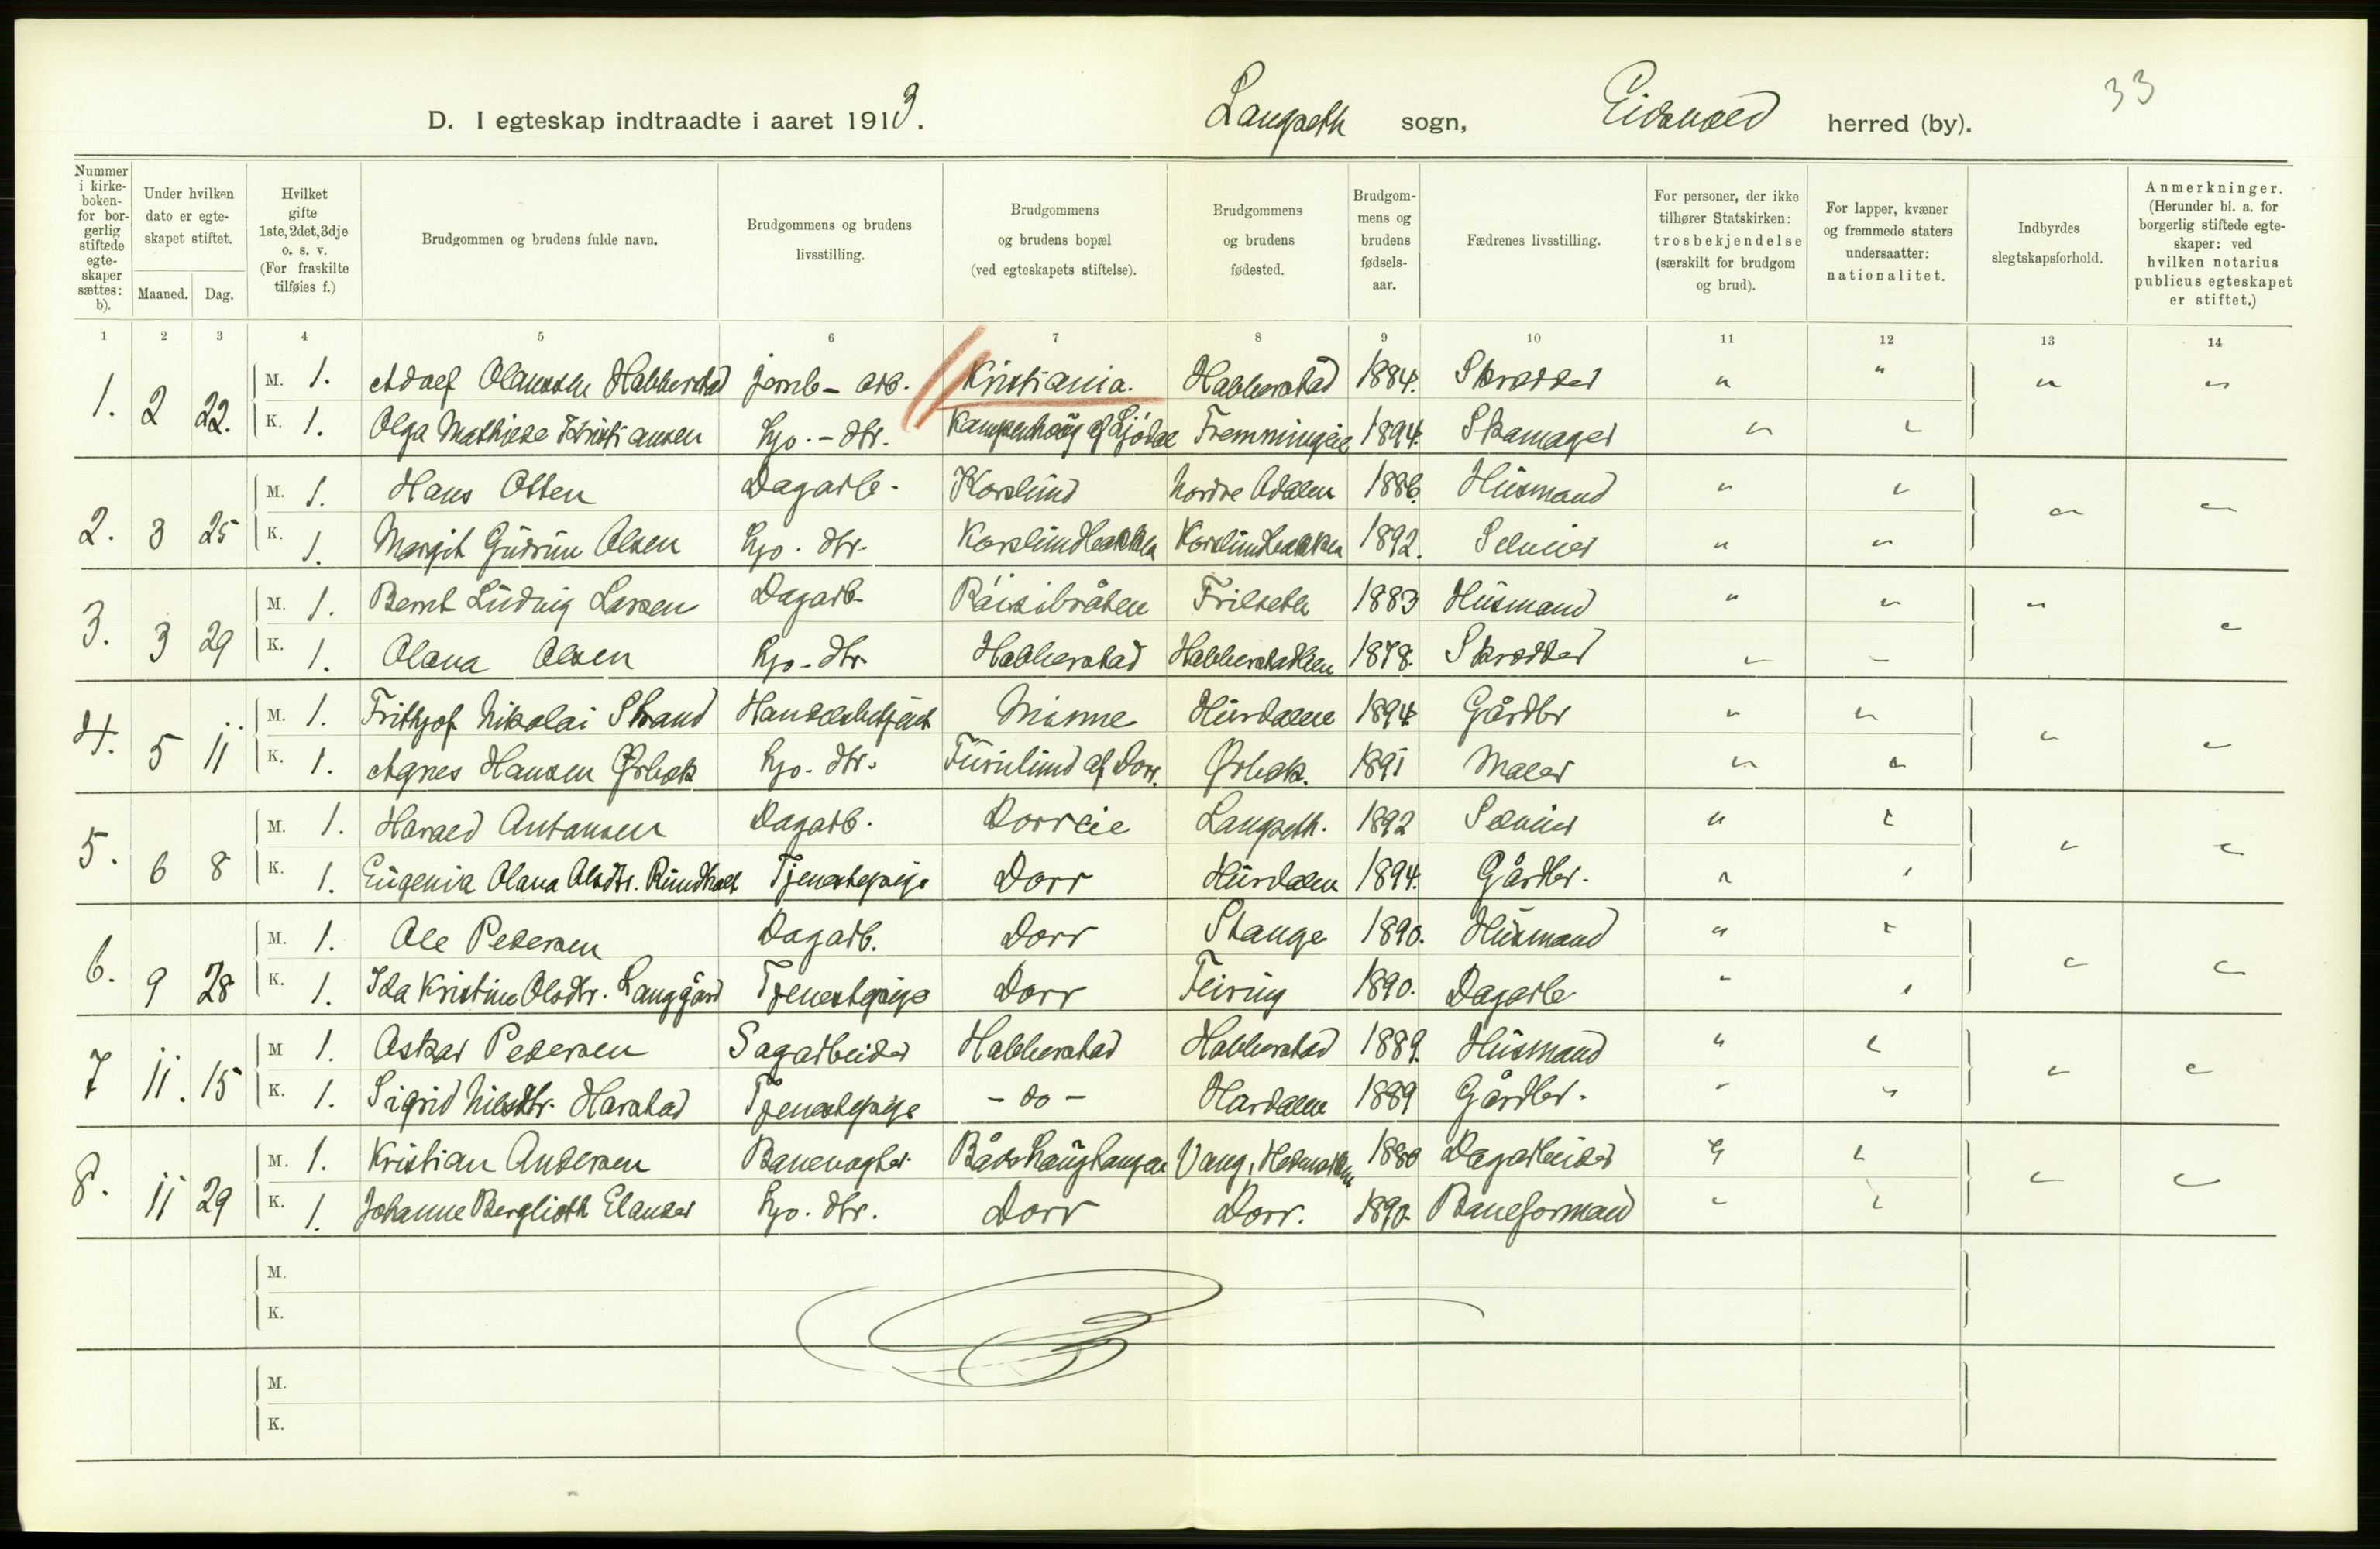 33
D. I egteskap indtraadte i aaret 1913. Langseth sogn, Eidsvold herred (by).
Nummer i kirkeboken for borgerlig stiftede egteskaper sættes: b).
Under hvilken dato er egteskapet stiftet.
Maaned. Dag.
Hvilket gifte 1ste, 2det, 3dje o. s. v. (For fraskilte tilføies f.)
Brudgommen og brudens fulde navn.
Brudgommens og brudens livsstilling.
Brudgommens og brudens bopæl (ved egteskapets stiftelse).
Brudgommens og brudens fødested.
Brudgommens og brudens fødselsaar.
Fædrenes livsstilling.
For personer, der ikke tilhører Statskirken: trosbekjendelse (særskilt for brudgom og brud).
For lapper, kvæner og fremmede staters undersaatter: nationalitet.
Indbyrdes slegtskapsforhold.
Anmerkninger. (Herunder bl. a. for borgerlig stiftede egteskaper: ved hvilken notarius publicus egteskapet er stiftet.)
1 2 3 4 5 6 7 8 9 10 11 12 13 14
1. 2 22. M. 1. Adolf Olaussen Habberstad jernb-arb. Kristiania. Habberstad 1884. Skrædder " " " "
K. 1. Olga Mathilde Kristiansen hjo.-dtr. 1894. Skomager " "
2. 3 25 M. 1. Hans Olsen Dagarb. Korslund Nordre Ådalen 1886. Husmand " " " "
K. 1. Margit Gudrun Olsen hjo. dtr. Korslundbakken Korslundbakken 1892. Selveier " "
3. 3 29 M. 1. Bernt Ludvig Larsen Dagarb. Råisibråten Frilseth 1883 Husmand " " " "
K. 1. Olava Olsen hjo-dtr. Habberstad Habberstadeien 1878. Skrædder " "
4. 5 11 M. 1. Frithjof Nikolai Strand Handelsbetjent Minne Hurdalen 1894. Gårdbr " " " "
K. 1. Agnes Hansen Ørbæk hjo. dtr. Furulund af Dorr. Ørbæk. 1891 Maler " "
5. 6 8 M. 1. Harald Antonsen Dagarb. Dorreie Langseth. 1892 Selveier " " " "
K. 1. Eugenia Olava Olsdtr. Rundhaet Tjenestepige Dorr Hurdalen 1894. Gårdbr. " "
6. 9 28 M. 1. Ole Pedersen Dagarb. Dorr Stange 1890. Husmand " " " "
K. 1. Ida Kristine Olsdtr. Langgård Tjenestepige Dorr Feiring 1890. Dagarb " "
7 11. 15 M 1. Oskar Pedersen Sagarbeider Habberstad Habberstad 1889. Husmand " " " "
K. 1. Sigrid Nilsdtr. Harstad Tjenestepige - do - Hurdalen 1889 Gårdbr. " "
8. 11 29 M. 1. Kristian Andersen Banevogter Vang, Hedmarken 1880 Dagarbeider " " " "
K. 1. Johanne Berglioth Elander hjo. dtr. Dorr Dorr. 1890. Baneformand " "
M.
K.
M.
K.